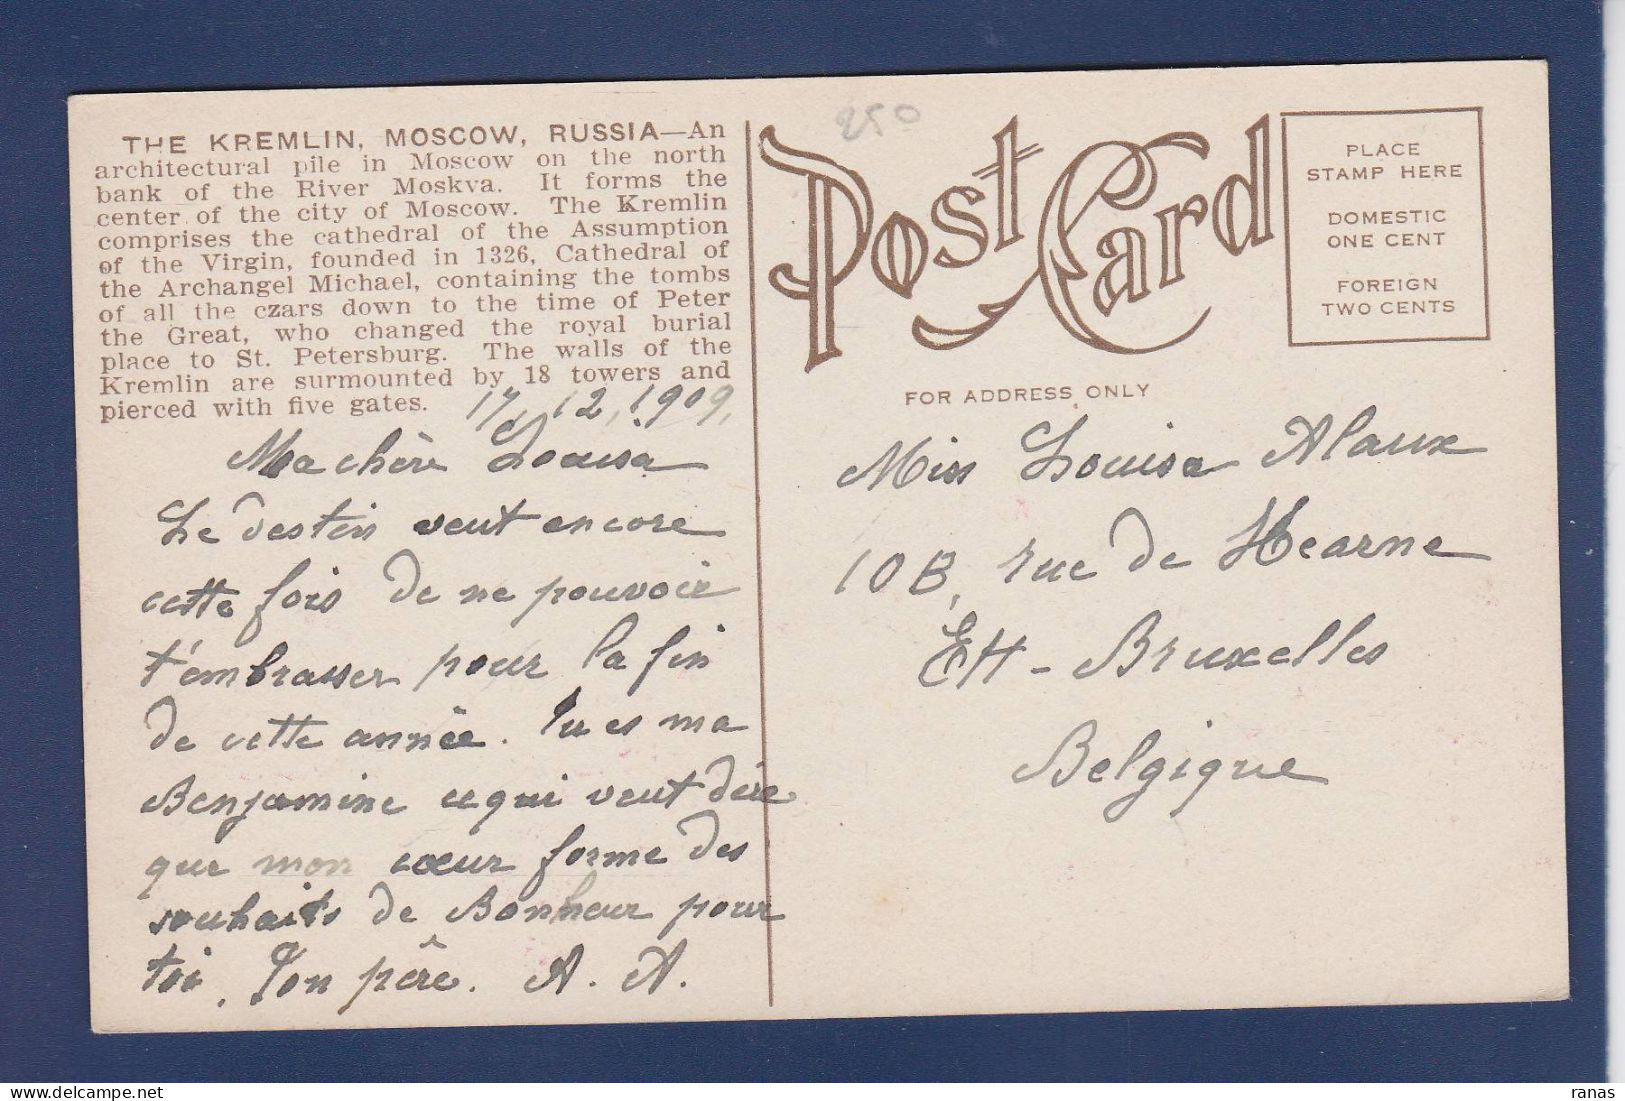 250
THE KREMLIN, MOSCOW, RUSSIA—An
architectural pile in Moscow on the north
bank of the River Moskva. It forms the
center of the city of Moscow. The Kremlin
comprises the cathedral of the Assumption
of the Virgin, founded in 1326, Cathedral of
the Archangel Michael, containing the tombs
of all the czars down to the time of Peter
the Great, who changed the royal burial
place to St. Petersburg. The walls of the
Kremlin are surmounted by 18 towers and
pierced with five gates.
17, 12, 1909,
Ma chère Louisa
Le destin veut encore
cette fois de ne pouvoir
t'embrasser pour la fin
de cette année. Tu es ma
Benjamine ce qui veut dire
que mon cœur forme des
souhaits de Bonheur pour
toi. Ton père. A. A.
Post Card
PLACE
STAMP HERE
DOMESTIC
ONE CENT
FOREIGN
TWO CENTS
FOR ADDRESS ONLY
Miss Louisa Alaux
10B, rue de Hearne
Ett-Bruxelles
Belgique
ranas